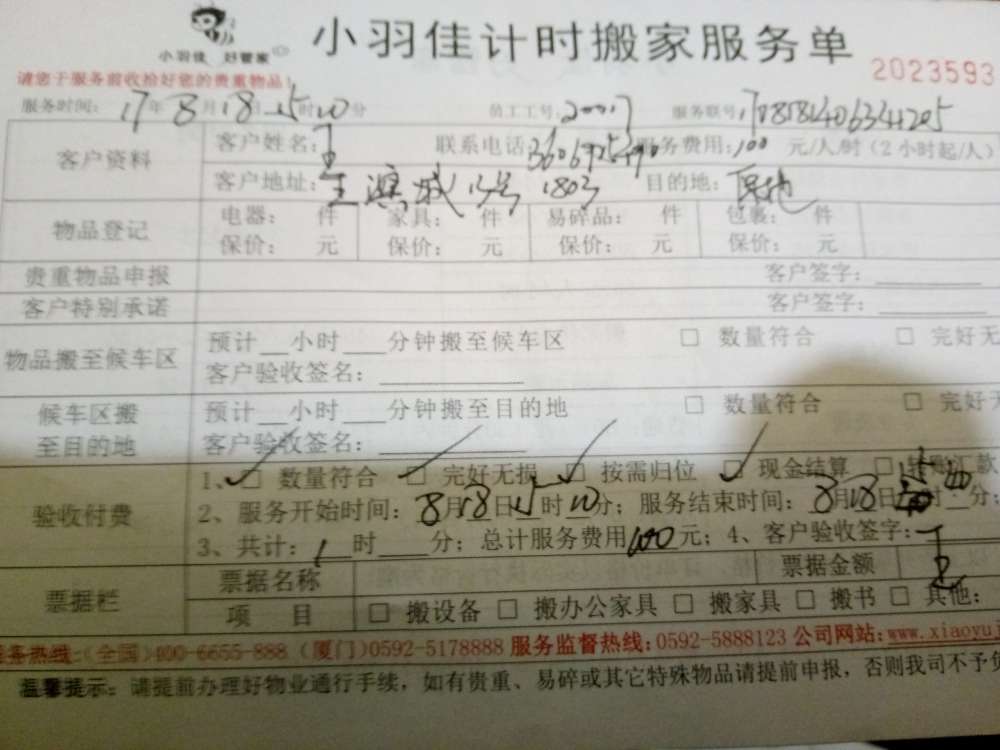 小羽佳 好管家
小羽佳计时搬家服务单
2023593
请您于服务前收拾好您的贵重物品!
服务时间: 17年8月18日15时10分 员工工号: 服务联号:
客户资料 客户姓名: 王 联系电话: 服务费用: 100 元/人/时(2小时起/人)
客户地址: 13号 1803 目的地: 原地
物品登记 电器: 件 家具: 件 易碎品: 件 包裹: 件
保价: 元 保价: 元 保价: 元 保价: 元
贵重物品申报 客户签字:
客户特别承诺 客户签字:
物品搬至候车区 预计__小时___分钟搬至候车区 □ 数量符合 □ 完好无
客户验收签名:
候车区搬至目的地 预计__小时___分钟搬至目的地 □ 数量符合 □ 完好无
客户验收签名:
验收付费 1、□ 数量符合 □ 完好无损 □ 按需归位 □ 现金结算 □ 转账汇款
2、服务开始时间: 8月18日15时10分; 服务结束时间: 8月18日 时 分;
3、共计: 1时___分; 总计服务费用100元; 4、客户验收签字: 王
票据栏 票据名称 票据金额
项 目 □ 搬设备 □ 搬办公家具 □ 搬家具 □ 搬书 □ 其他:
服务热线:(全国)400-6655-888 (厦门)0592-5178888 服务监督热线:0592-5888123 公司网站:www.xiaoyuj
温馨提示: 请提前办理好物业通行手续,如有贵重、易碎或其它特殊物品请提前申报,否则我司不予